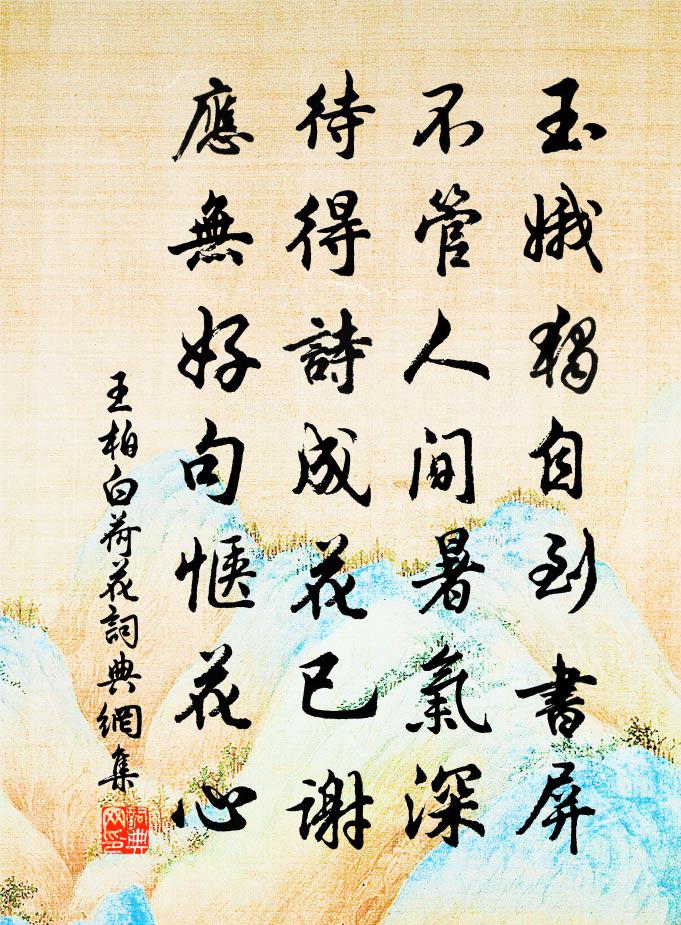 玉娥獨自到書屏
不管人間暑氣深
待得詩成花已謝
應無好句愜花心
王柏白荷花詞典網集
詞典網印